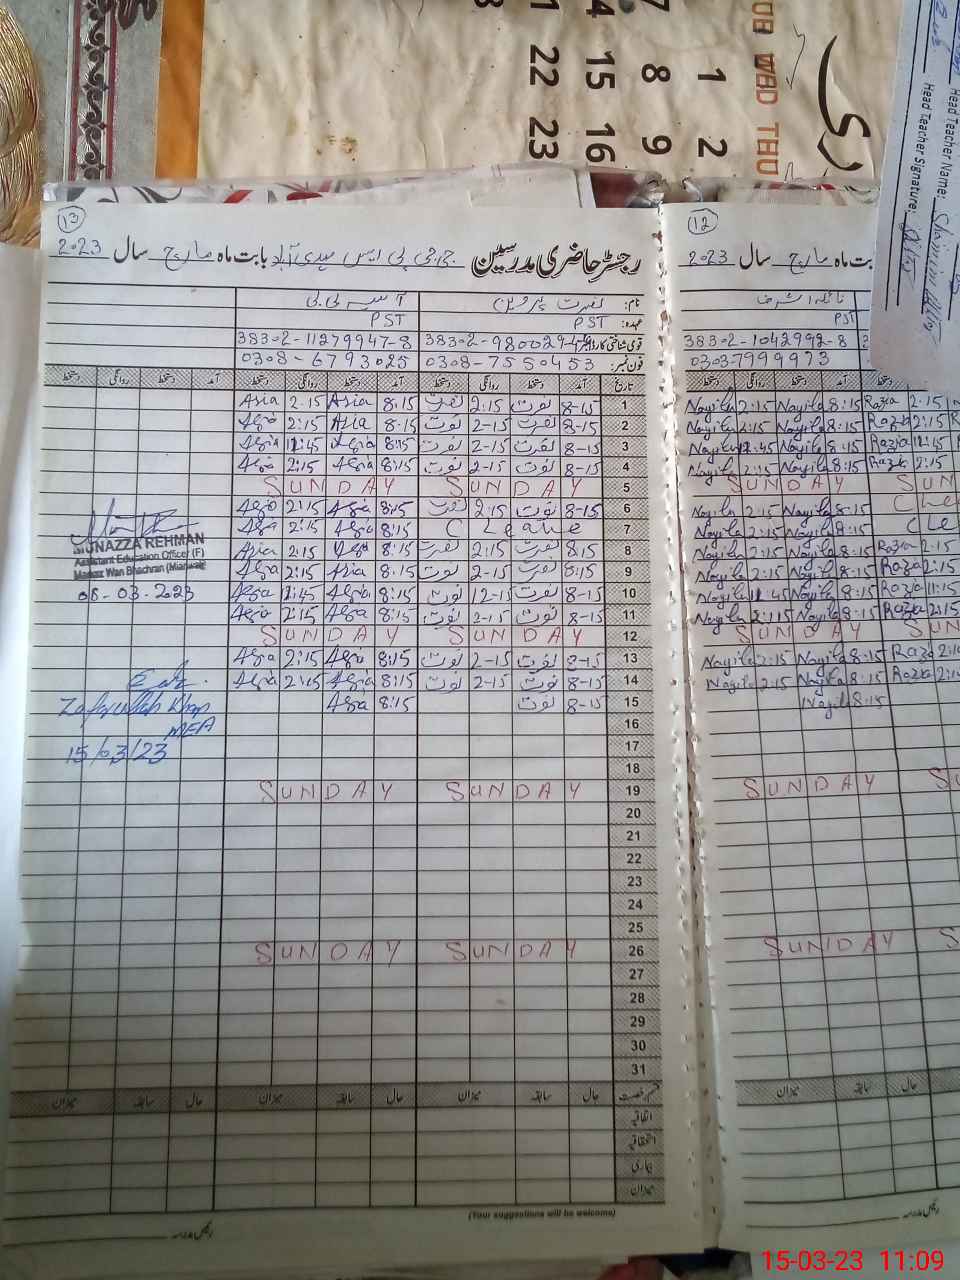 JOB WED THU
1 2
8 9
15 16
22 23
Head Teacher Name:
Head Teacher Signature:
13
رجسٹر حاضری مدرسین جی جی پی ایس سیدی آباد بابت ماہ مارچ سال 2023
نام: نصرت پروین آسیہ بی بی
عہدہ: PST PST
قومی شناختی کارڈ نمبر: 38302-11279947-8
فون نمبر: 0308-7550453 0308-6793025
تاریخ آمد دستخط روانگی دستخط آمد دستخط روانگی دستخط آمد دستخط روانگی دستخط
1 8-15 نصرت 2:15 نصرت 8.15 Asia 2.15 Asia
2 8-15 نصرت 2-15 نصرت 8.15 Asia 2:15 Asia
3 8-15 نصرت 2-15 نصرت 8:15 Asia 12:45 Asia
4 8-15 نصرت 2-15 نصرت 8:15 Asia 2:15 Asia
5 SUNDAY SUNDAY
6 8-15 نصرت 2:15 نصرت 8:15 Asia 2:15 Asia
7 C Leave 8:15 Asia 2:15 Asia
8 8:15 نصرت 2:15 نصرت 8:15 Asia 2:15 Asia
9 8:15 نصرت 2-15 نصرت 8.15 Asia 2:15 Asia
10 8-15 نصرت 12-15 نصرت 8:15 Asia 12:45 Asia
11 8-15 نصرت 2-15 نصرت 8:15 Asia 2:15 Asia
12 SUNDAY SUNDAY
13 8-15 نصرت 2-15 نصرت 8:15 Asia 2:15 Asia
14 8-15 نصرت 2-15 نصرت 8:15 Asia 2:15 Asia
15 8-15 نصرت 8:15 Asia
16
17
18
19 SUNDAY SUNDAY
20
21
22
23
24
25
26 SUNDAY SUNDAY
27
28
29
30
31
MUNAZZA REHMAN
Assistant Education Officer (F)
Markaz Wan Bhachran (Mianwali)
08-03-2023
Zafarullah Khan
MEA
15/03/23
قسم رخصت حال سابقہ میزان حال سابقہ میزان حال سابقہ میزان
اتفاقیہ
استحقاقیہ
بیماری
میزان
(Your suggestions will be welcome)
رئیس مدرسہ
12
بابت ماہ مارچ سال 2023
نائلہ اشرف
PST
38302-1042992-8
0303-7999973
آمد دستخط روانگی دستخط
2:15 Razia 8:15 Nayila 2:15 Nayila
2:15 Razia 8:15 Nayila 2:15 Nayila
12:45 Razia 8:15 Nayila 12:45 Nayila
2:15 Razia 8:15 Nayila 2:15 Nayila
SUNDAY SUN
8:15 Nayila 2:15 Nayila
C Le 8:15 Nayila 2:15 Nayila
2.15 Razia 8:15 Nayila 2:15 Nayila
2:15 Razia 8:15 Nayila 2:15 Nayila
Razia 8:15 Nayila Nayila
2:15 Razia 8:15 Nayila Nayila
SUNDAY SUN
Razia 8:15 Nayila 2:15 Nayila
Razia 8:15 Nayila 2:15 Nayila
8:15 Nayila
SUNDAY S
SUNDAY S
حال سابقہ میزان
رئیس مدرسہ
15-03-23 11:09